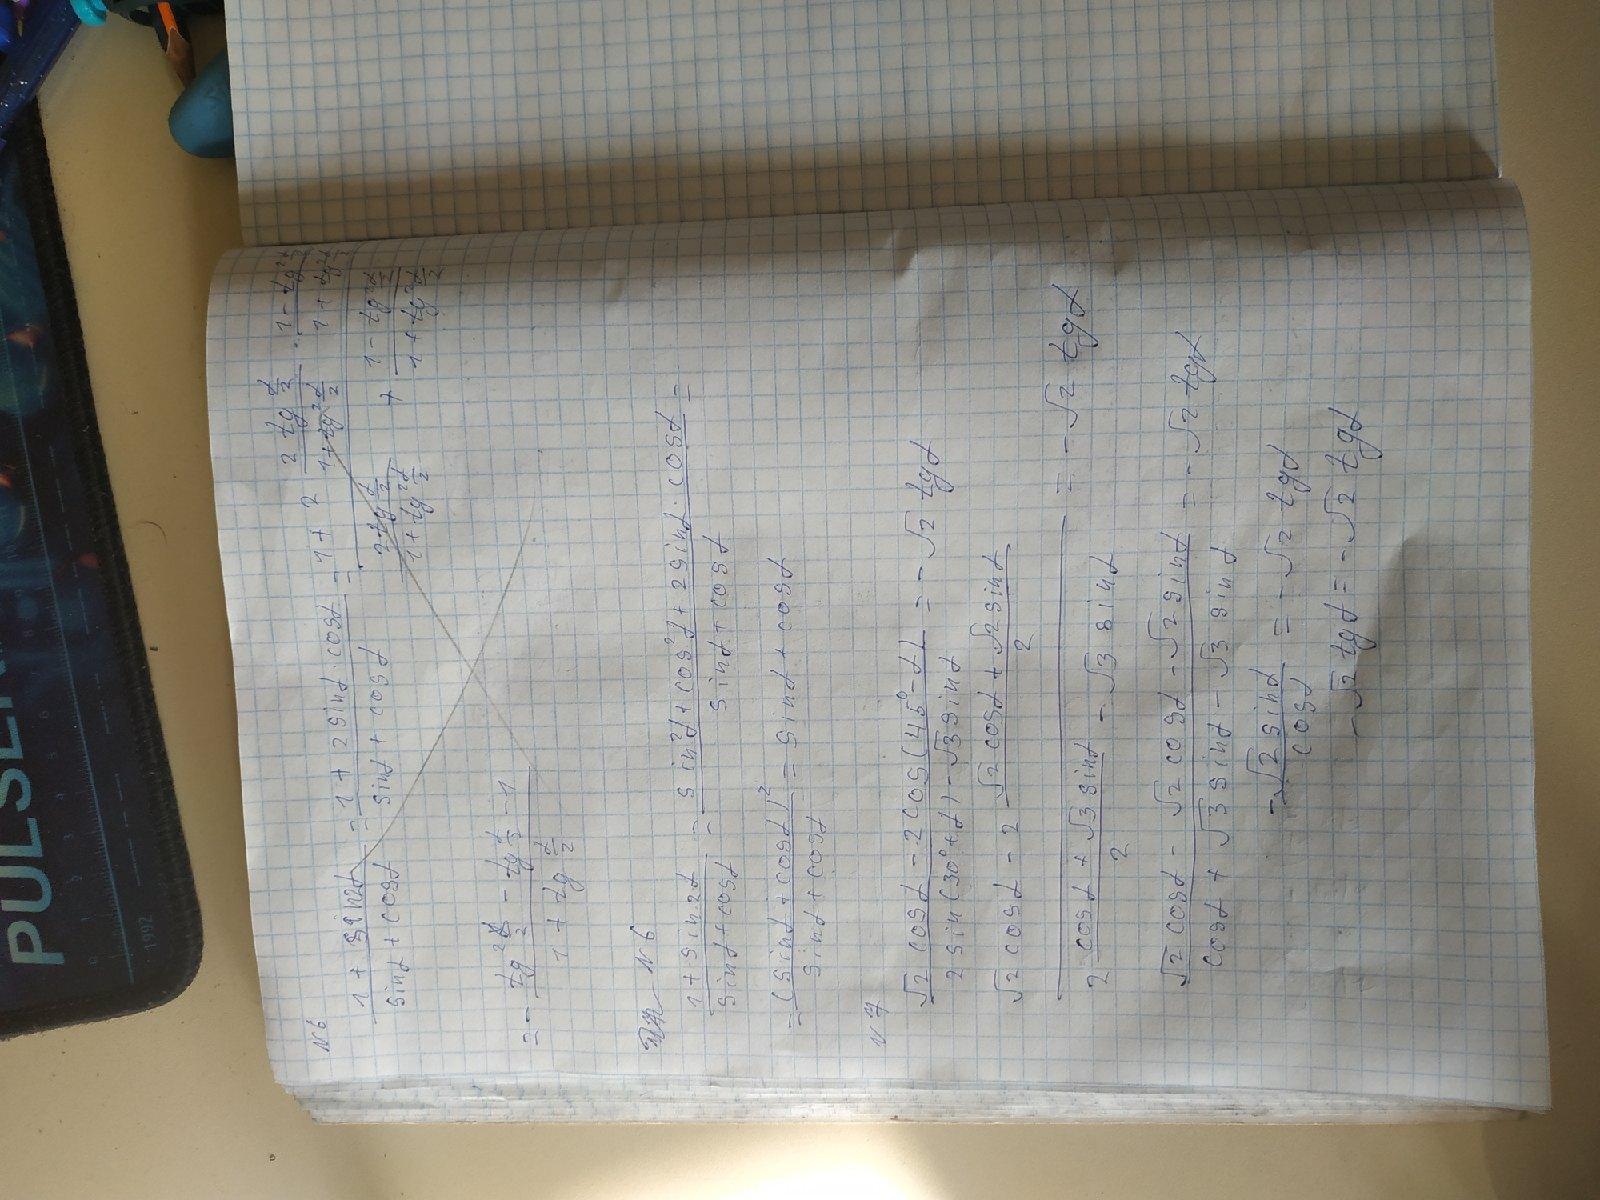 N6
\frac{1 + sin2α}{sinα + cosα} = \frac{1 + 2sinα · cosα}{sinα + cosα} = \frac{1 + 2 \frac{2 tg\frac{α}{2}}{1 + tg^2\frac{α}{2}} · \frac{1 - tg^2\frac{α}{2}}{1 + tg^2\frac{α}{2}}}{\frac{2 tg\frac{α}{2}}{1 + tg^2\frac{α}{2}} + \frac{1 - tg^2\frac{α}{2}}{1 + tg^2\frac{α}{2}}}
N6
\frac{1 + sin2α}{sinα + cosα} = \frac{sin^2α + cos^2α + 2sinα · cosα}{sinα + cosα} =
= \frac{(sinα + cosα)^2}{sinα + cosα} = sinα + cosα
N7
\frac{√2 cosα - 2cos(45° - α)}{2sin(30° + α) - √3 sinα} = -√2 tgα
\frac{√2 cosα - 2 \frac{√2 cosα + √2 sinα}{2}}{2 \frac{cosα + √3 sinα}{2} - √3 sinα} = -√2 tgα
\frac{√2 cosα - √2 cosα - √2 sinα}{cosα + √3 sinα - √3 sinα} = -√2 tgα
-\frac{√2 sinα}{cosα} = -√2 tgα
-√2 tgα = -√2 tgα
PULSE
1992